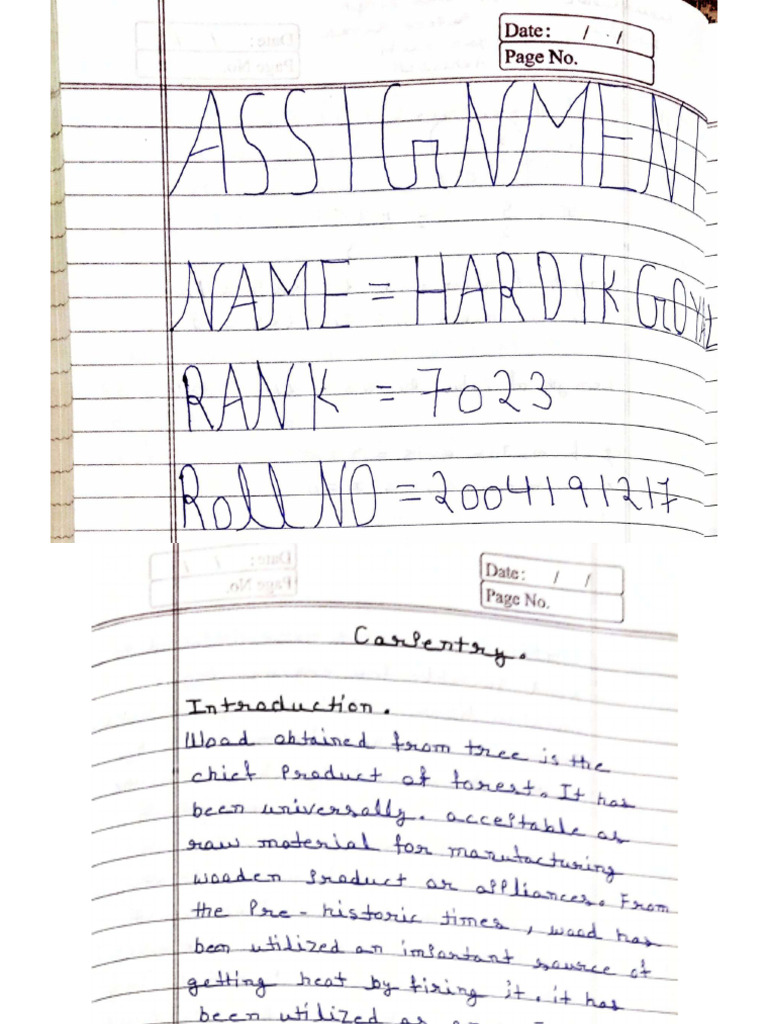 Date: / /
Page No.
ASSIGNMENT
NAME = HARDIK GOYAL
RANK = 7023
Roll NO = 2004191217
Date: / /
Page No.
Carpentry.
Introduction.
Wood obtained from tree is the
chief Product of forest. It has
been universally. acceptable as
raw material for manufacturing
wooden Product or appliances. From
the Pre-historic times, wood has
been utilized an important source of
getting heat by firing it. it has
been utilized as